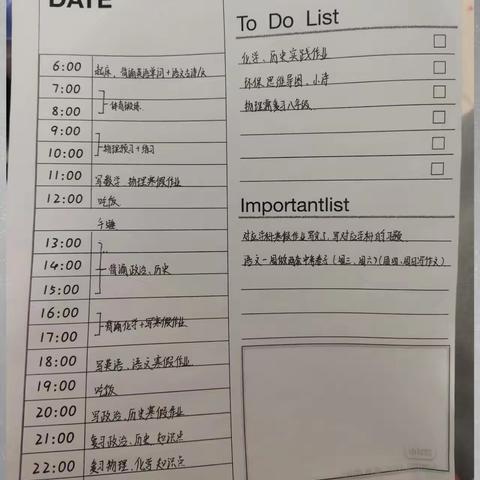 DATE
6:00 起床、背诵英语单词+语文古诗/文
7:00
8:00 体育锻炼
9:00
10:00 物理预习+练习
11:00 写数学、物理寒假作业
12:00 吃饭
午睡
13:00
14:00 背诵政治、历史
15:00
16:00
17:00 背诵化学+写寒假作业
18:00 写英语、语文寒假作业
19:00 吃饭
20:00 写政治、历史寒假作业
21:00 复习政治、历史 知识点
22:00 复习物理、化学知识点
To Do List
化学、历史实践作业
环保思维导图、小诗
物理需复习八年级
Importantlist
对应学科寒假作业写完了、写对应学科的习题
语文一周做两套中考卷子(周三、周六)(周四、周日写作文)